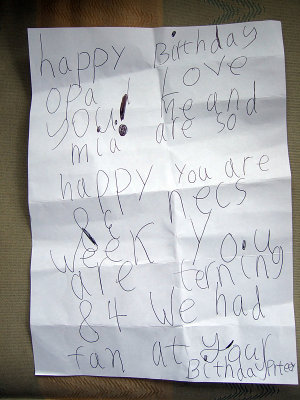 happy Birthday
opa I love
you! me and
mia are so
happy you are
84 necs
week you
are terning
84 we had
fan at your
Birthday